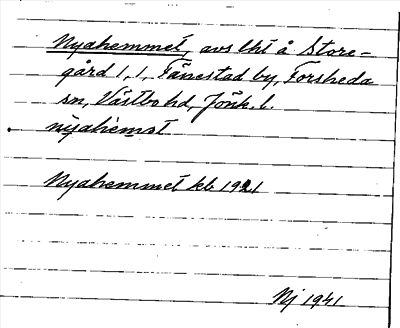 Nyahemmet, avs lht å Store-
gård 1,1, Tånestad by, Forsheda
sn, Västbo hd, Jönk. l.
nỳahèmət
Nyahemmet kb 1921
Nj 1941